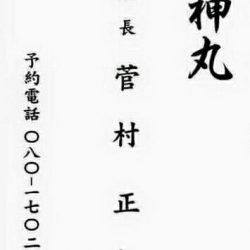 神丸
長 菅村正
予約電話 〇八〇ー一七〇二